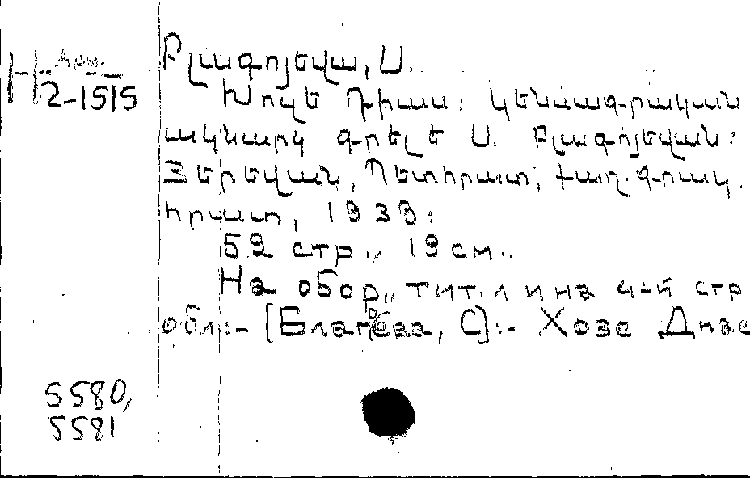 Арм.
Н 2-1515
Բլագոյեվա, Ս.
Խոզե Դիաս: Կենսագրական
ակնարկ գրել է Ս. Բլագոյեվան:
Յերեվան, Պետհրատ, քաղ.գրակ.
հրատ, 1939:
52 стр., 19 см.
На обор. тит. л и на 4-й стр
обл:- [Благоева, С]:- Хозе Диас
5580,
5581